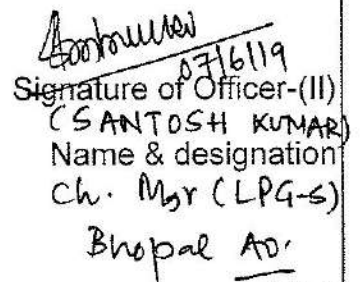 07/6/19
Signature of Officer-(II)
(SANTOSH KUMAR)
Name & designation
Ch. Mgr (LPG-S)
Bhopal AO.